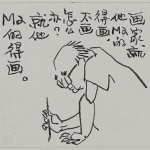 画家說
他Ma的
得画.
不画
怎么
办?
就他
Ma的得画。